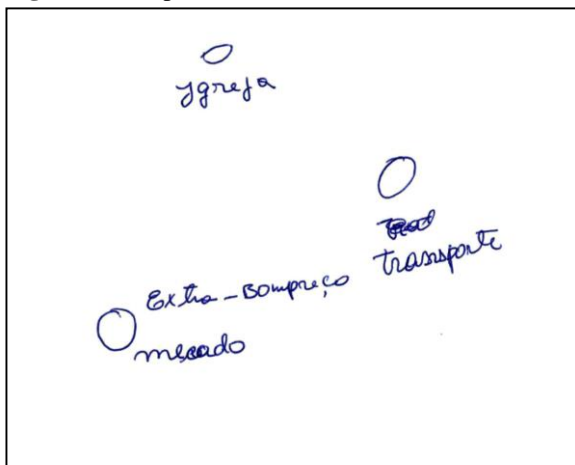 Ygreja
transporte
Extra-Bompreço
mercado